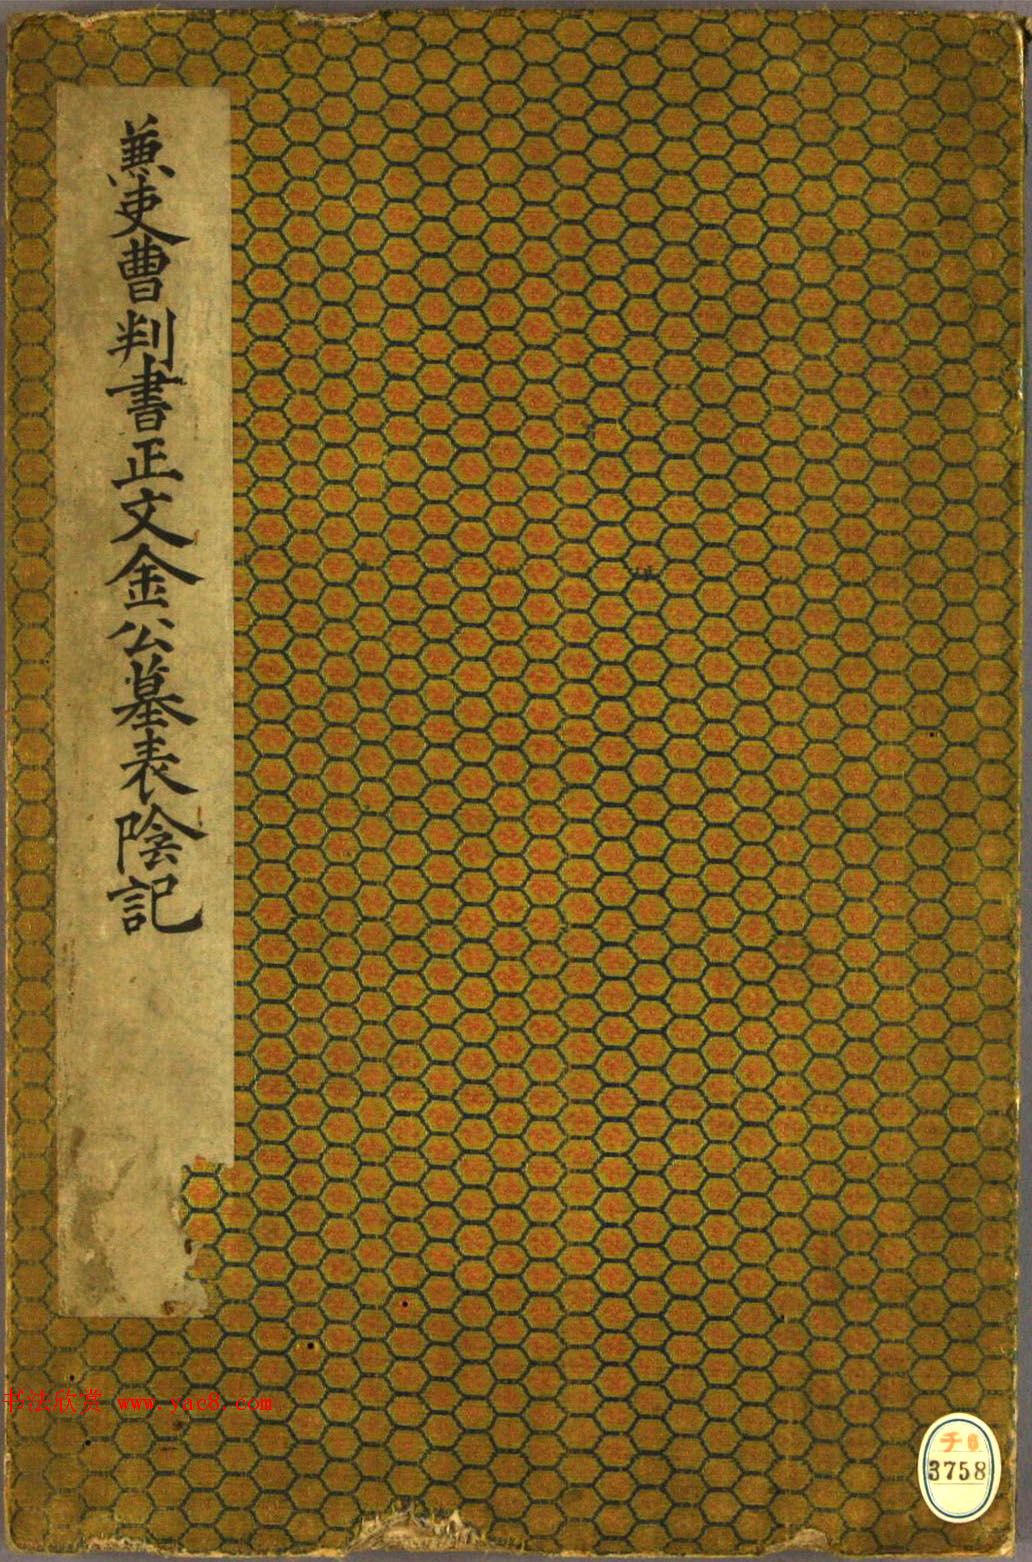 兼吏曹判書正文金公墓表陰記
书法欣赏 www.yac8.com
チ6
3758